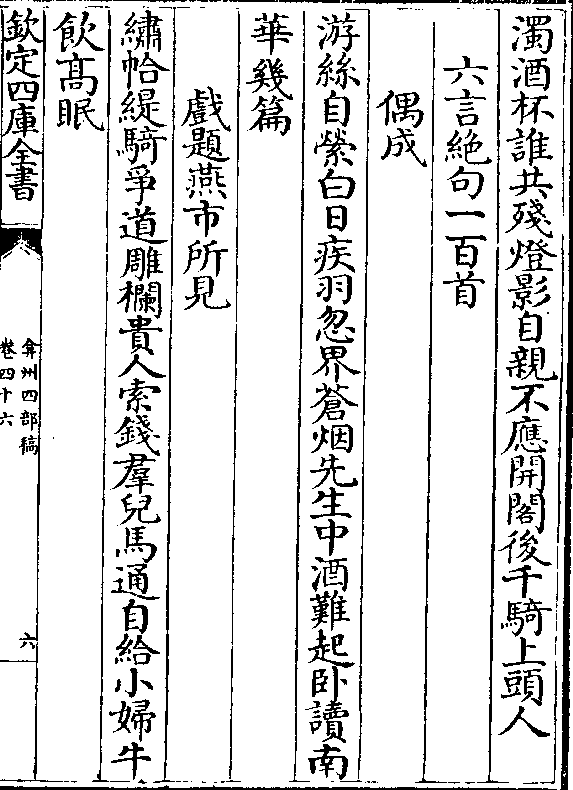 濁酒杯誰共殘燈影自親不應開閣後千騎上頭人
六言絶句一百首
偶成
游絲自縈白日疾羽忽界蒼烟先生中酒難起卧讀南
華幾篇
戲題燕市所見
繡帢緹騎爭道雕欄貴人索錢羣兒馬通自給小婦牛
飲髙眠
欽定四庫全書
弇州四部稿
卷四十六
六